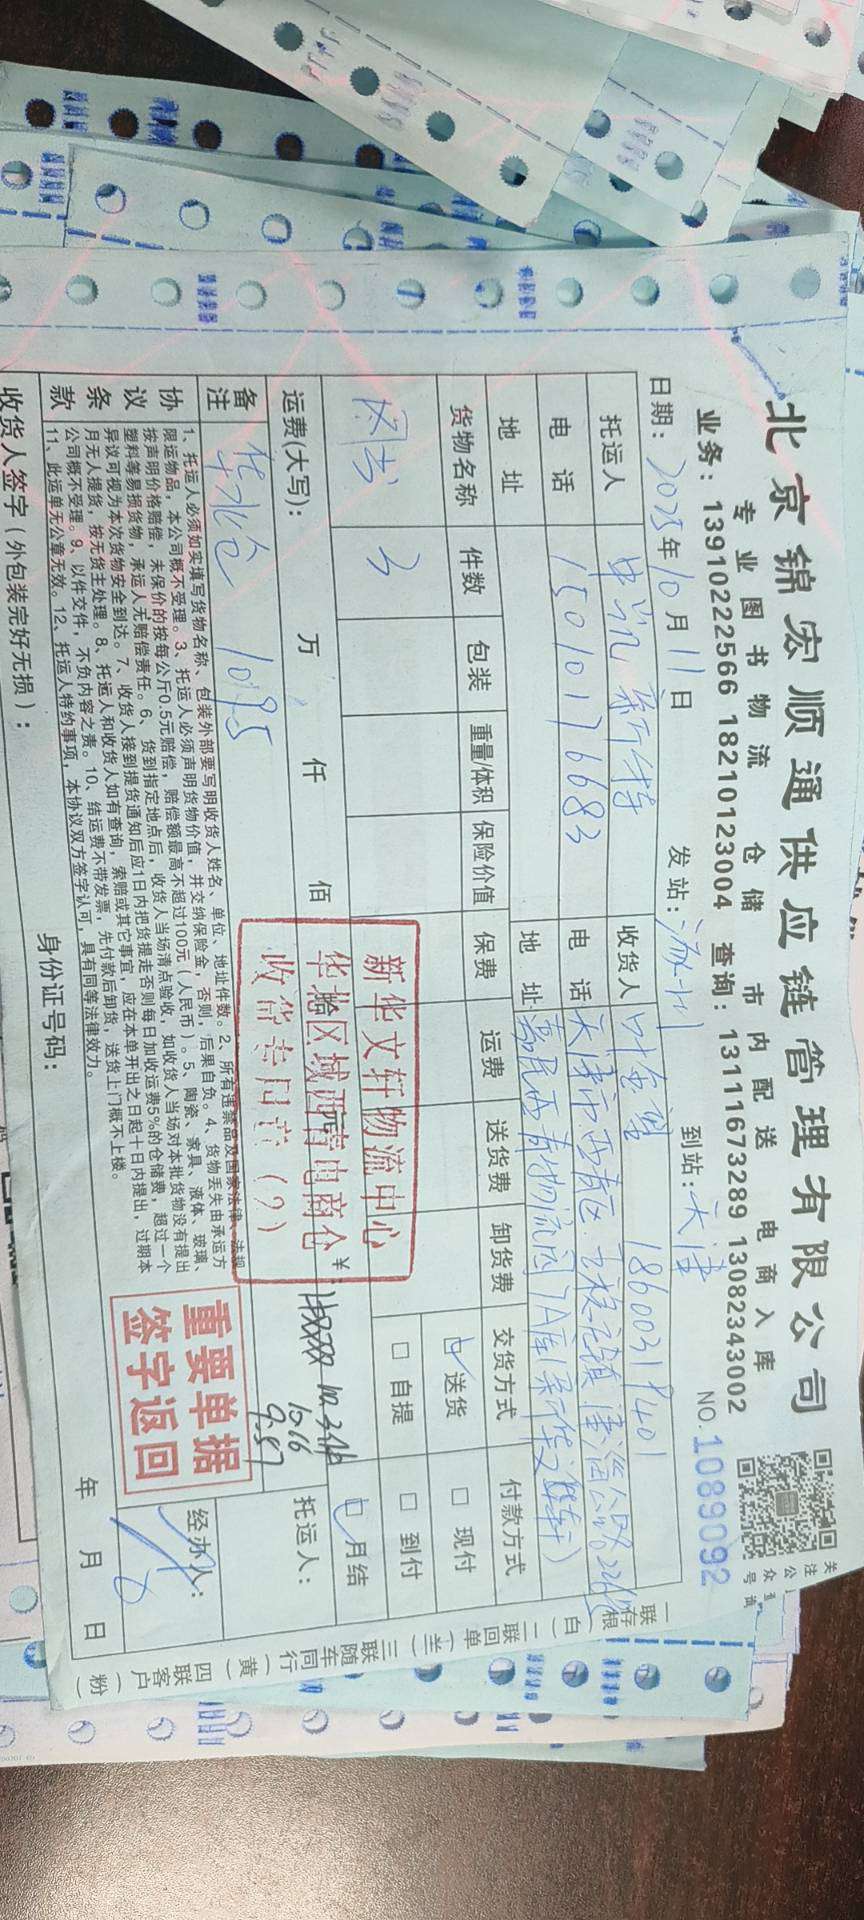 北京锦宏顺通供应链管理有限公司
专业图书物流 仓储 市内配送 电商入库
业务：13910222566 18210123004 查询：13111673289 13082343002
关注公众
日期：2025年10月11日 发站：涿州 到站：天津 NO.1089092
托运人 申凯 新特 收货人 叶金玺 18600319401
电话 15010176683 电话
地址 地址
天津市西青区
嘉民西青物流园7A库(新华文轩)
货物名称 件数 包装 重量/体积 保险价值 保费 运费 送货费 卸货费 交货方式 付款方式
图书 3 送货 现付
自提 到付
月结
运费(大写)： 万 仟 佰 拾 ¥：
托运人：
新华文轩物流中心
华北区域西青电商仓
收货专用章(2)
备注 华北仓 1095
10.16
9.87
协议条款
1、托运人必须如实填写货物名称、包装外部要写明收货人姓名、单位、地址件数。2、所有违禁品及国家法律、法规
限运物品，本公司概不受理。3、托运人必须声明货物价值，并交纳保险金，否则，后果自负。4、货物丢失由承运方
按声明价格赔偿，未保价的按每公斤0.5元赔偿，赔偿额最高不超过100元（人民币）。5、陶瓷、家具、液体、玻璃、
塑料等易损货物，承运人无赔偿责任。6、货到指定地点后，收货人当场清点验收，如收货人当场对本批货物没有提出
异议可视为本次货物安全到达。7、收货人接到提货通知后应1日内把货提走否则每日加收运费5%的仓储费，超过一个
月无人提货，按无货主处理。8、托运人和收货人如有查询，索赔或其它事宜，应在本单开出之日起十日内提出，过期本
公司概不受理。9、以件交件，不负内容之责。10、结运费不带发票，先付款后卸货，送货上门概不上楼。
11、此运单无公章无效。12、托运人特约事项，本协议双方签字认可，具有同等法律效力。
重要单据
签字返回
经办人：
收货人签字（外包装完好无损）： 身份证号码： 年 月 日
一联存根（白）二联回单（兰）三联随车同行（黄）四联客户（粉）